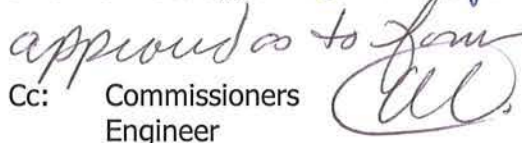 approved as to form
Cc: Commissioners
Engineer